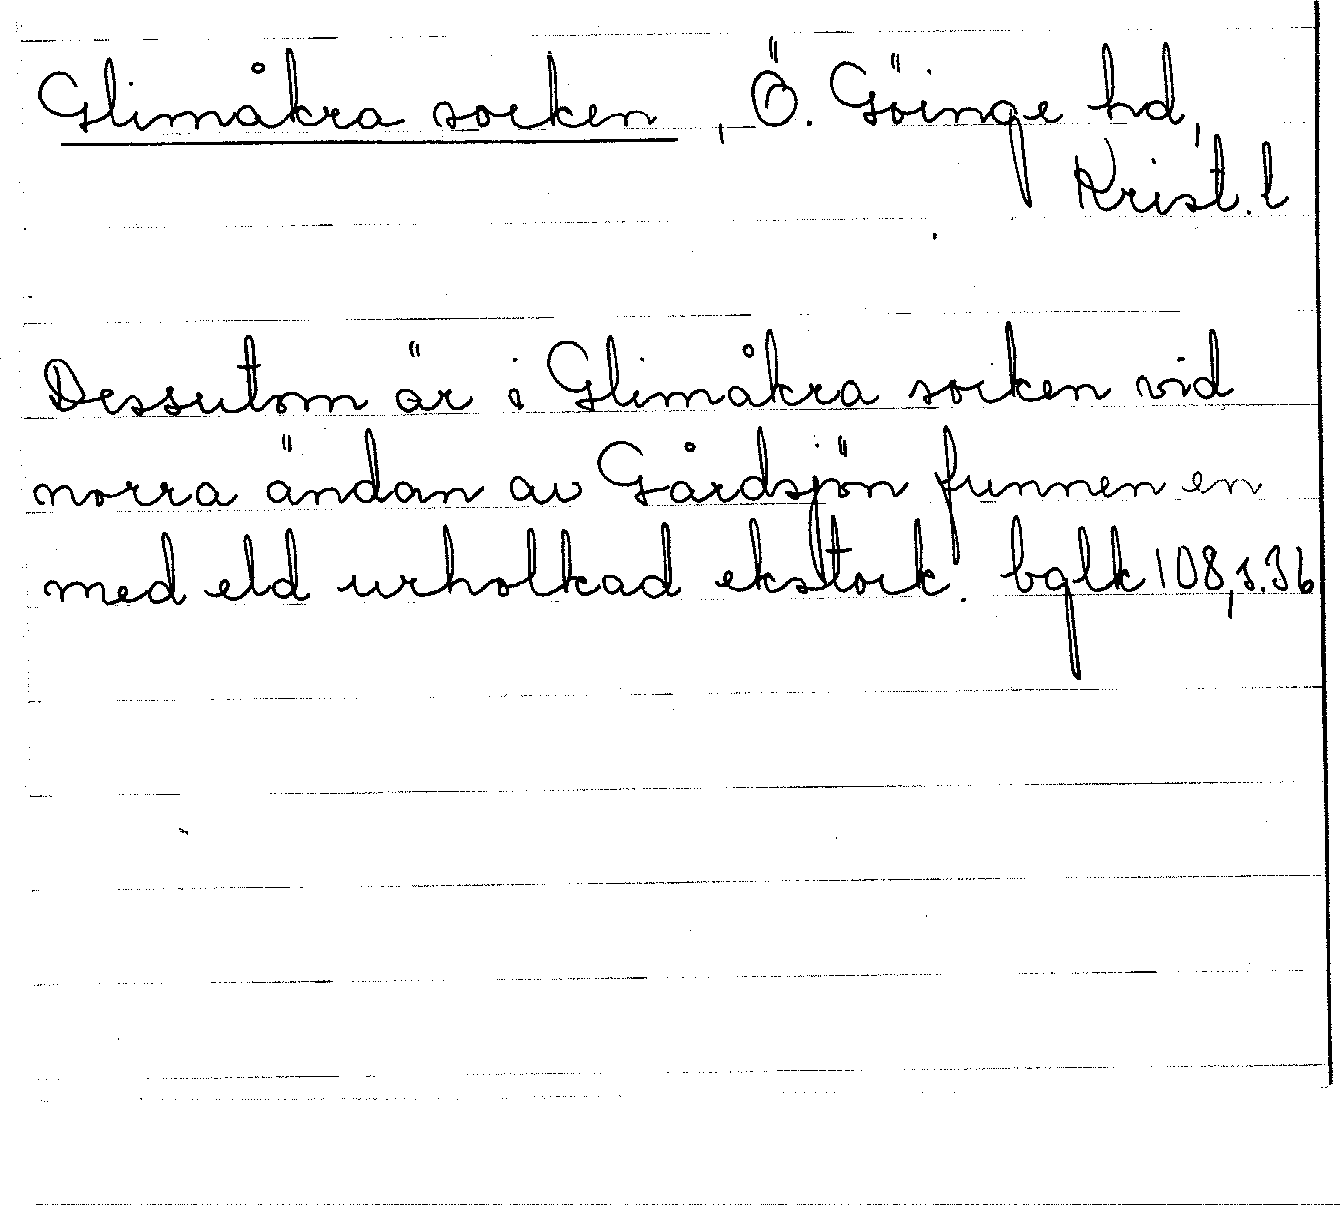 Glimåkra socken, Ö. Göinge hd,
Krist. l
Dessutom är i Glimåkra socken vid
norra ändan av Gårdsjön funnen en
med eld urholkad ekstock. bqlk 108, s. 36